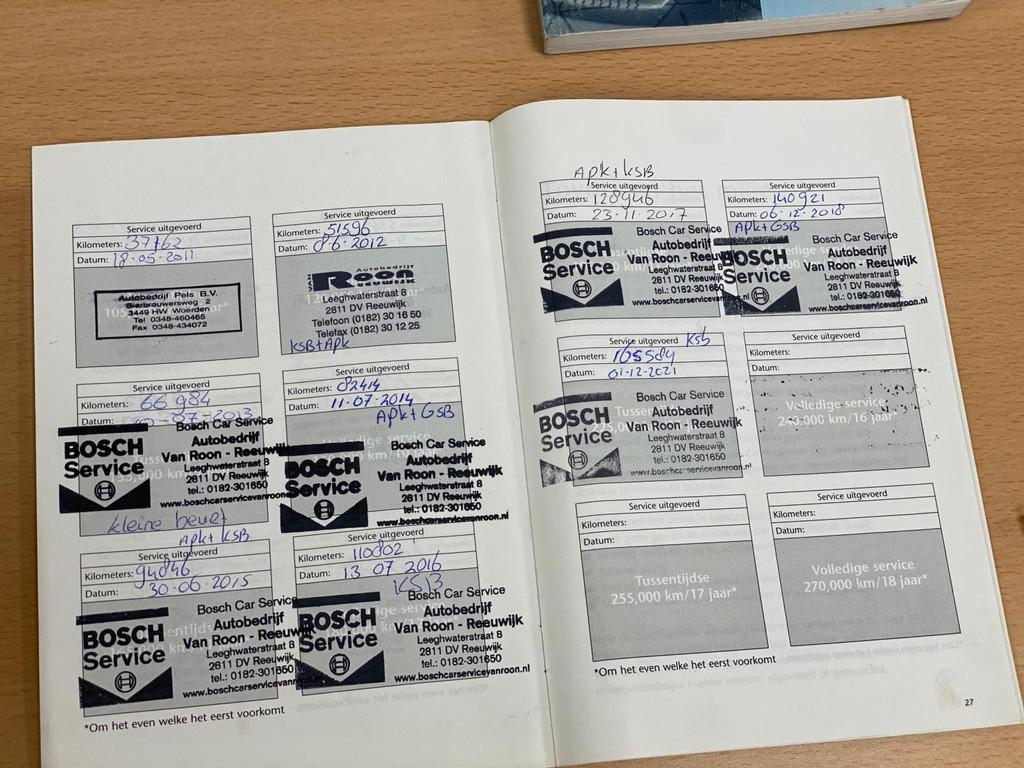 Service uitgevoerd
Kilometers: 37762
Datum: 18-05-2011
Autobedrijf Pels B.V.
Bierbrouwersweg 2
3449 HW Woerden
Tel 0348-460465
Fax 0348-434072
Service uitgevoerd
Kilometers: 51596
Datum: 8-6-2012
Autobedrijf
VAN Roon Reeuwijk
Leeghwaterstraat 8
2811 DV Reeuwijk
Telefoon (0182) 30 16 50
Telefax (0182) 30 12 25
KSB+Apk
Service uitgevoerd
Kilometers: 66984
Datum: -07-2013
Bosch Car Service
BOSCH Service
Autobedrijf
Van Roon - Reeuwijk
Leeghwaterstraat 8
2811 DV Reeuwijk
tel.: 0182-301650
www.boschcarservicevanroon
kleine beurt
Service uitgevoerd
Kilometers: 82414
Datum: 11-07-2014
Apk+GSB
Bosch Car Service
BOSCH Service
Autobedrijf
Van Roon - Reeuwijk
Leeghwaterstraat 8
2811 DV Reeuwijk
tel.: 0182-301650
www.boschcarservicevanroon.nl
Apk+ KSB
Service uitgevoerd
Kilometers: 94046
Datum: 30-06-2015
Bosch Car Service
BOSCH Service
Autobedrijf
Van Roon - Reeuwijk
Leeghwaterstraat 8
2811 DV Reeuwijk
tel.: 0182-301650
www.boschcarservicevanroon.nl
Service uitgevoerd
Kilometers: 110802
Datum: 13 07 2016
KSB
Bosch Car Service
BOSCH Service
Autobedrijf
Van Roon - Reeuwijk
Leeghwaterstraat 8
2811 DV Reeuwijk
tel.: 0182-301650
www.boschcarservicevanroon.nl
*Om het even welke het eerst voorkomt
Apk+KSB
Service uitgevoerd
Kilometers: 128946
Datum: 23-11-2017
Bosch Car Service
BOSCH Service
Autobedrijf
Van Roon - Reeuwijk
Leeghwaterstraat 8
2811 DV Reeuwijk
tel.: 0182-301650
www.boschcarservicevan
Service uitgevoerd
Kilometers: 140921
Datum: 06-12-2018
Apk+GSB
Bosch Car Service
BOSCH Service
Autobedrijf
Van Roon - Reeuwijk
Leeghwaterstraat 8
2811 DV Reeuwijk
tel.: 0182-301650
www.boschcarservicevanroon.nl
Service uitgevoerd Ksb
Kilometers: 165584
Datum: 01-12-2021
Bosch Car Service
BOSCH Service
Autobedrijf
Van Roon - Reeuwijk
Leeghwaterstraat 8
2811 DV Reeuwijk
tel.: 0182-301650
www.boschcarservicevanroon.nl
Service uitgevoerd
Kilometers:
Datum:
Volledige service
240,000 km/16 jaar*
Service uitgevoerd
Kilometers:
Datum:
Tussentijdse
255,000 km/17 jaar*
Service uitgevoerd
Kilometers:
Datum:
Volledige service
270,000 km/18 jaar*
*Om het even welke het eerst voorkomt
27